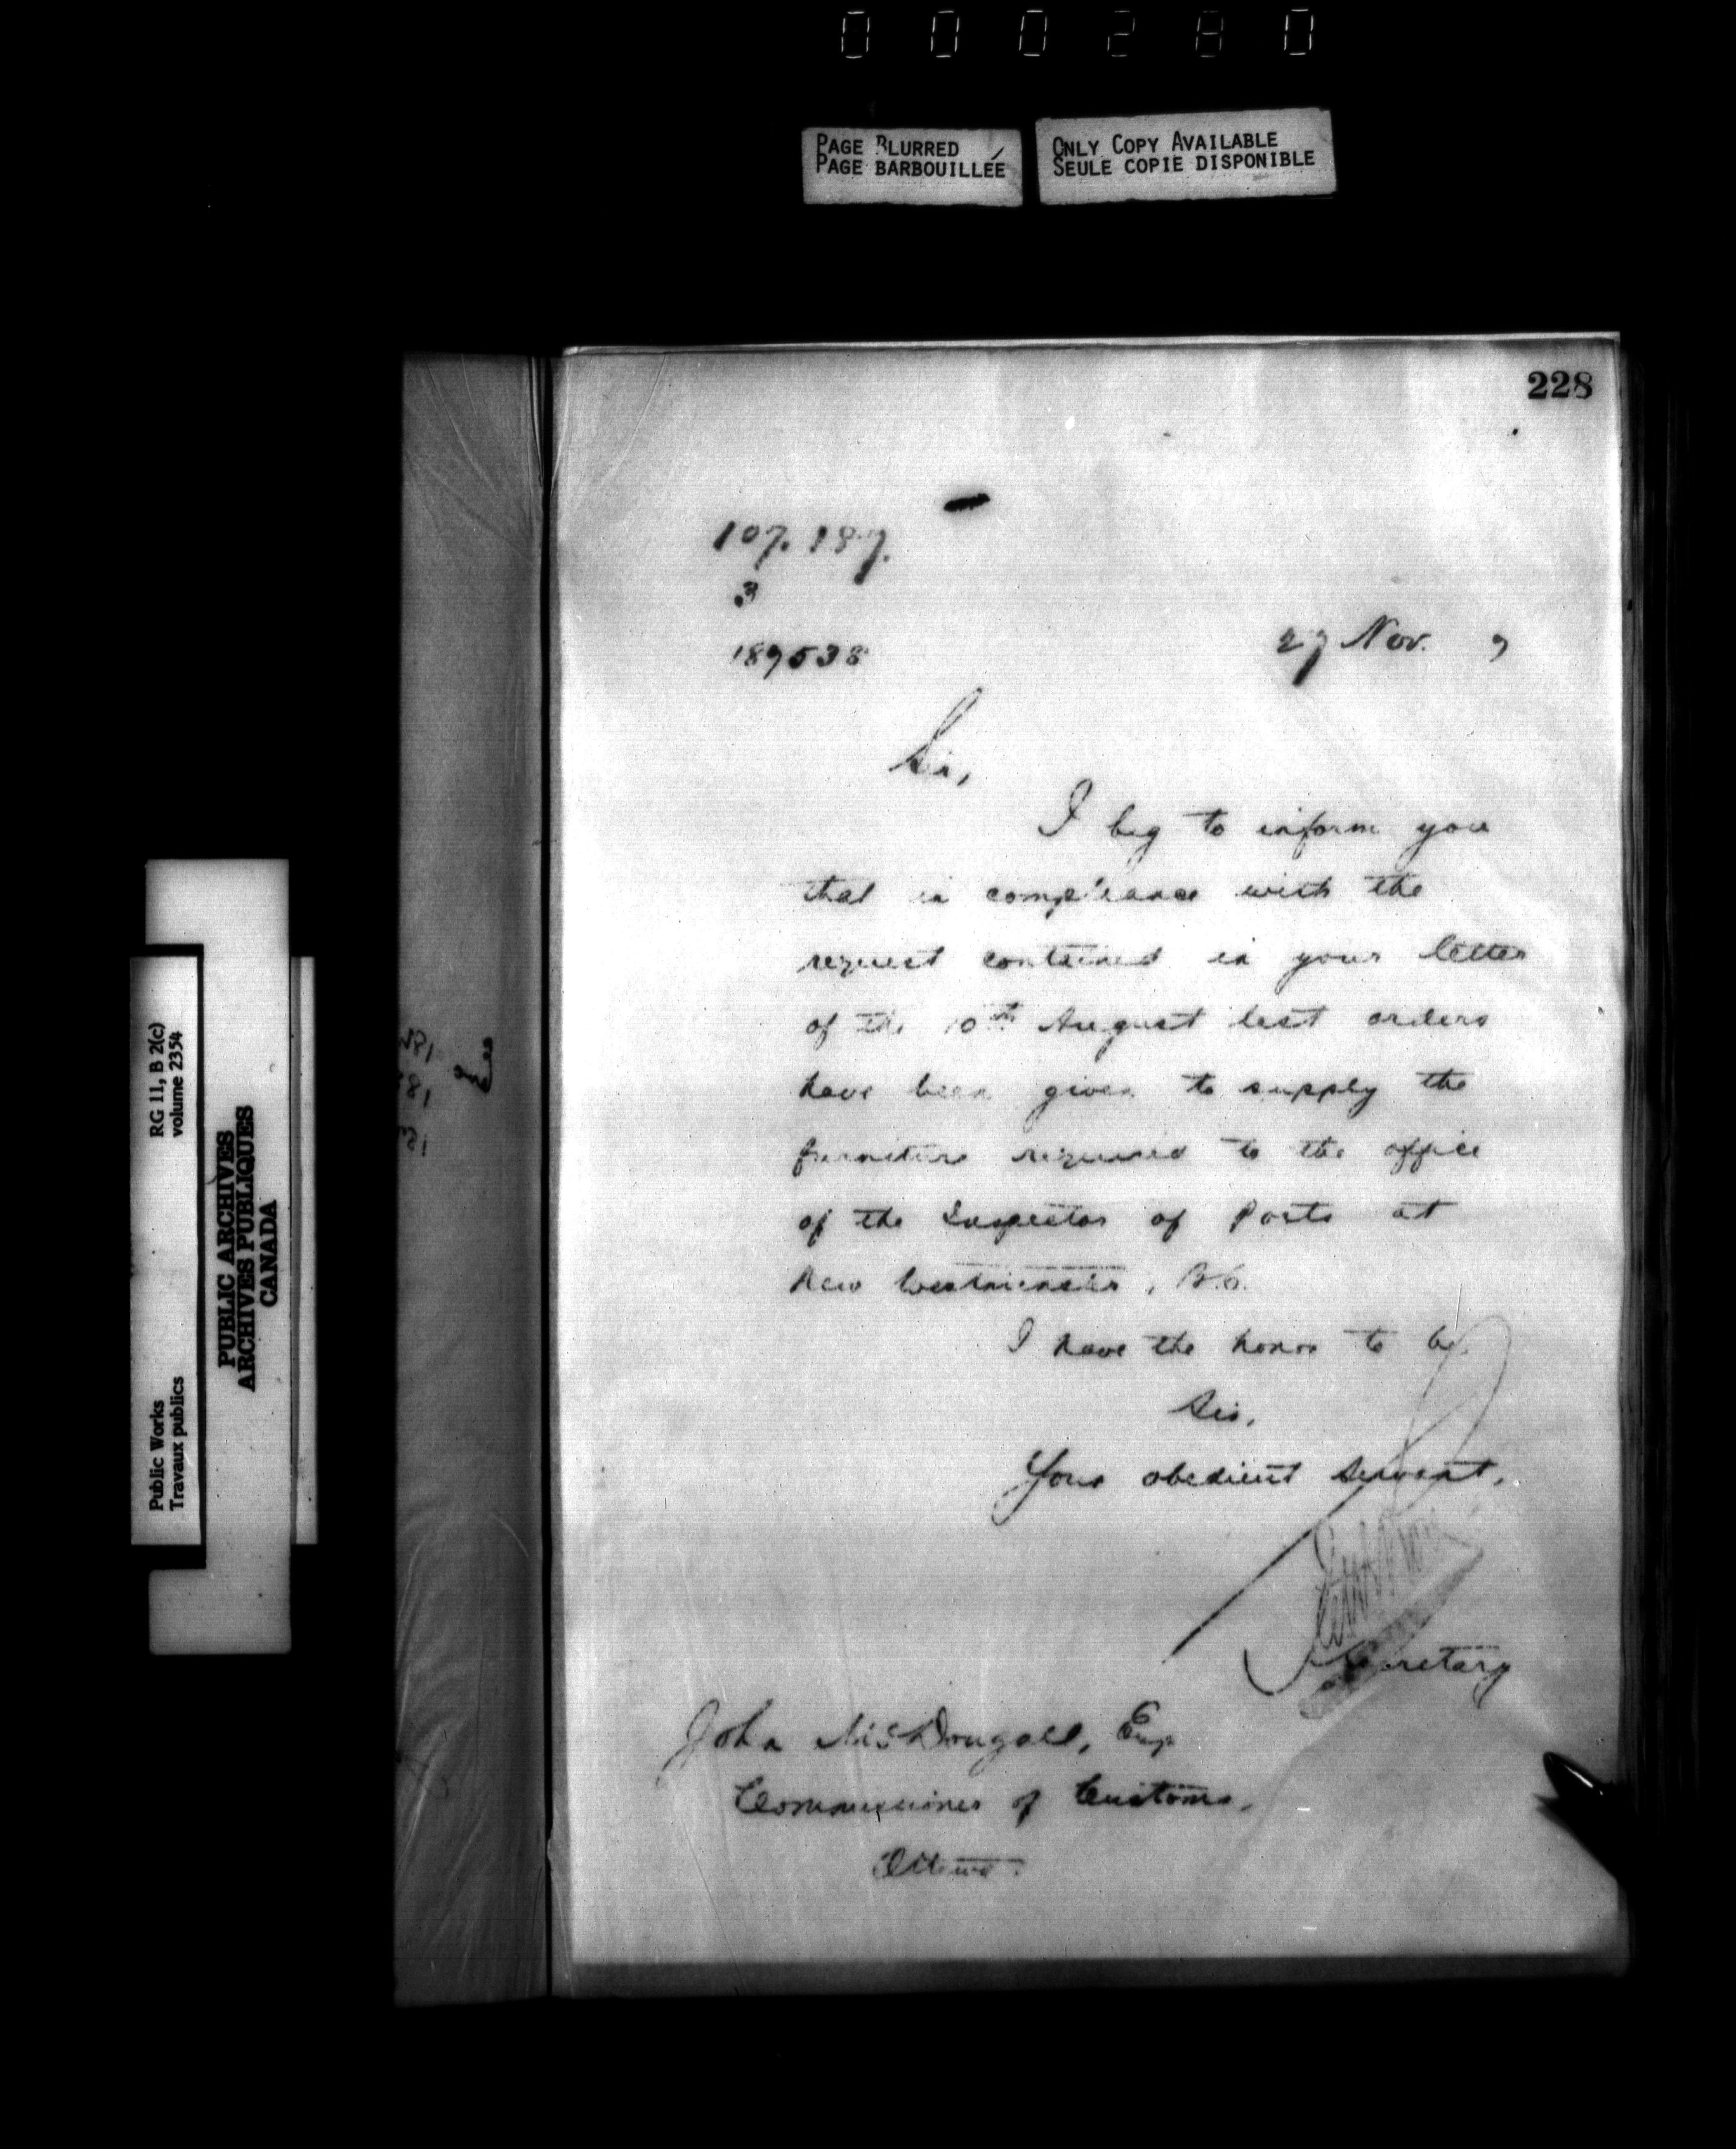 000280
PAGE BLURRED
PAGE BARBOUILLÉE
ONLY COPY AVAILABLE
SEULE COPIE DISPONIBLE
228
107.187.
3
189538
27 Nov. 7
Sir,
I beg to inform you
that in compliance with the
request contained in your letter
of the 10th August last orders
have been given to supply the
furniture required to the office
of the Inspector of Ports at
New Westminster, B.C.
I have the honor to be
Sir,
Your obedient servant,
Secretary
John McDougall, Esq
Commissioner of Customs,
Ottawa.
RG 11, B 2(c)
volume 2354
Public Works
Travaux publics
PUBLIC ARCHIVES
ARCHIVES PUBLIQUES
CANADA